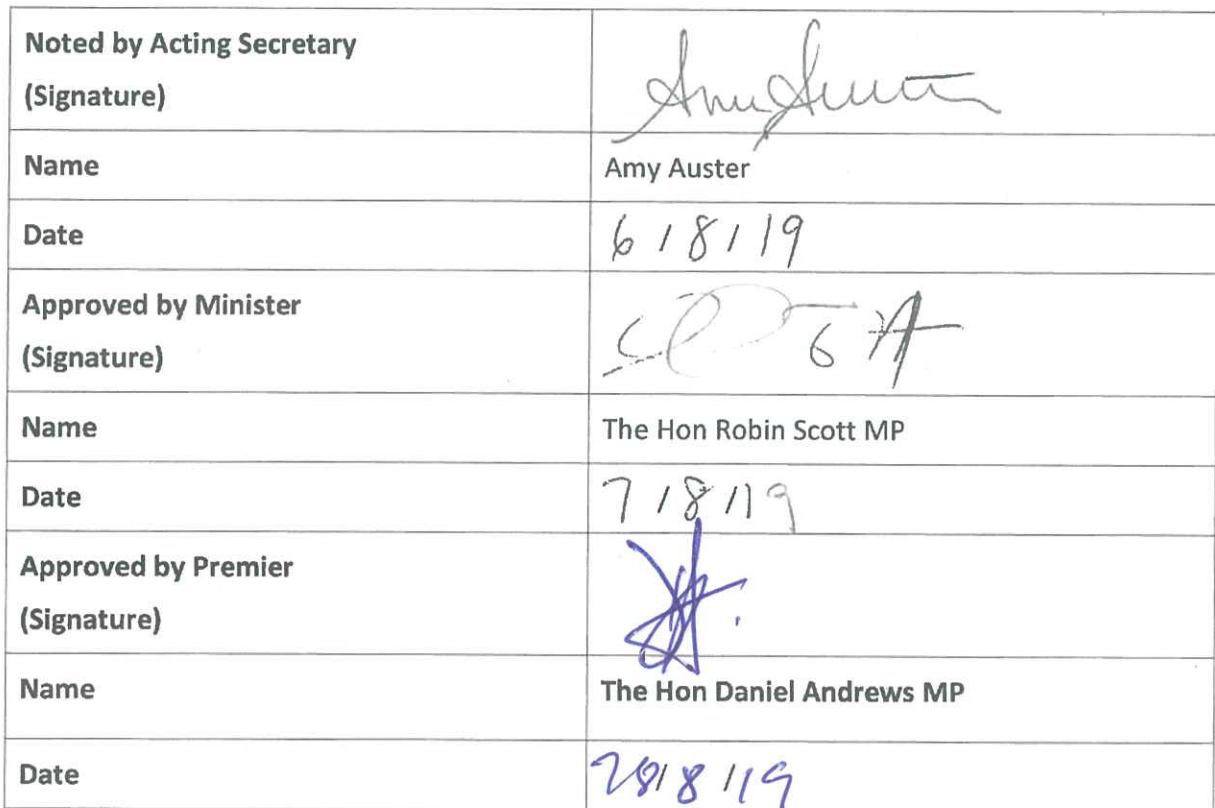 Noted by Acting Secretary
(Signature)
Amy Auster
Name
Amy Auster
Date
6/8/19
Approved by Minister
(Signature)
Name
The Hon Robin Scott MP
Date
7/8/19
Approved by Premier
(Signature)
Name
The Hon Daniel Andrews MP
Date
28/8/19